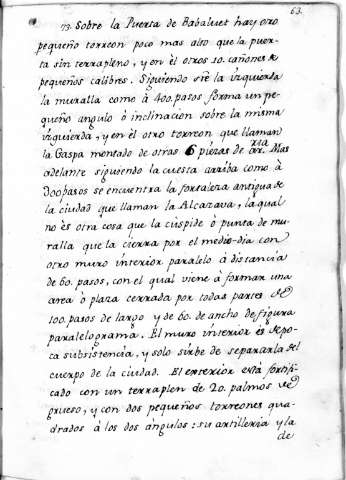 63.
73. Sobre la Puerta de Babaluet hay otro
pequeño torreon poco mas alto que la puer-
ta sin terrapleno, y en èl otros 10. cañones de
pequeños calibres. Siguiendo sre la izquierda
la muralla como à 400. pasos forma un pe-
queño angulo ò inclinacion sobre la misma
izguierda, y en èl otro torreon que llaman
la Gaspa montado de otras 6 piezas de arria. Mas
adelante siguiendo la cuesta arriba como à
300 pasos se encuentra la fortaleza antigua de
la ciudad que llaman la Alcazava, la qual
no ès otra cosa que la cùspide ò punta de mu-
ralla que la cierra por el medio-dia con
otro muro interior paralelo à distancia
de 60. pasos, con el qual viene à formar una
area ò plaza cerrada por todas partes de
100. pasos de largo y de 60. de ancho de figura
paralelograma. El muro interior ès de po-
ca subsistencia, y solo sirbe de separarla del
cuerpo de la ciudad. El exterior està fortifi-
cado con un terraplen de 20. palmos de
grueso, y con dos pequeños torreones qua-
drados à los dos angulos: su artilleria y la
de